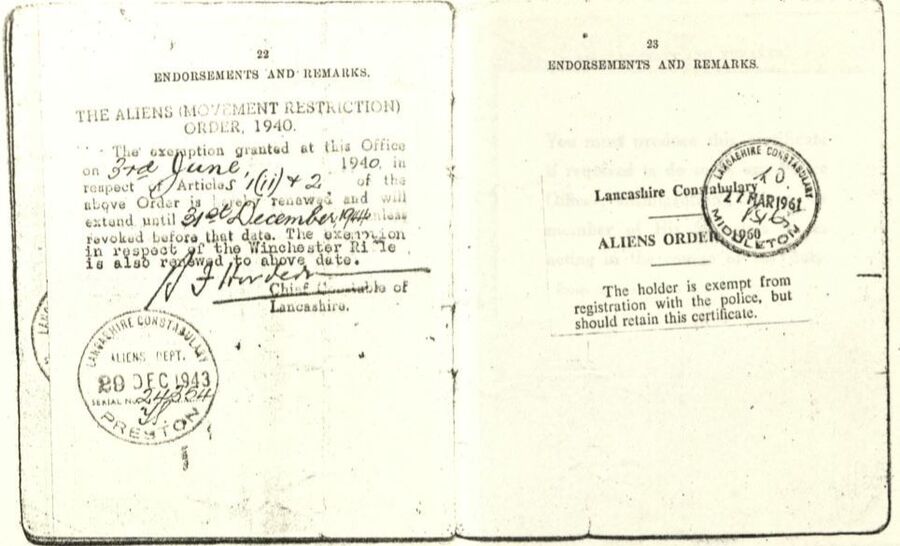 22
ENDORSEMENTS AND REMARKS.
THE ALIENS (MOVEMENT RESTRICTION)
ORDER, 1940.
The exemption granted at this Office
on 3rd June, 1940, in
respect of Articles 1(ii) & 2, of the
above Order is hereby renewed and will
extend until 31st December, 1944 unless
revoked before that date. The exemption
in respect of the Winchester Rifle
is also renewed to above date.
Chief Constable of
Lancashire.
LANCASHIRE CONSTABULARY
ALIENS DEPT.
29 DEC 1943
SERIAL No. 24304
PRESTON
23
ENDORSEMENTS AND REMARKS.
You must produce this certificate
if required to do so
Lancashire Constabulary
ALIENS ORDER, 1960
The holder is exempt from
registration with the police, but
should retain this certificate.
LANCASHIRE CONSTABULARY
27 MAR 1961
MIDDLETON